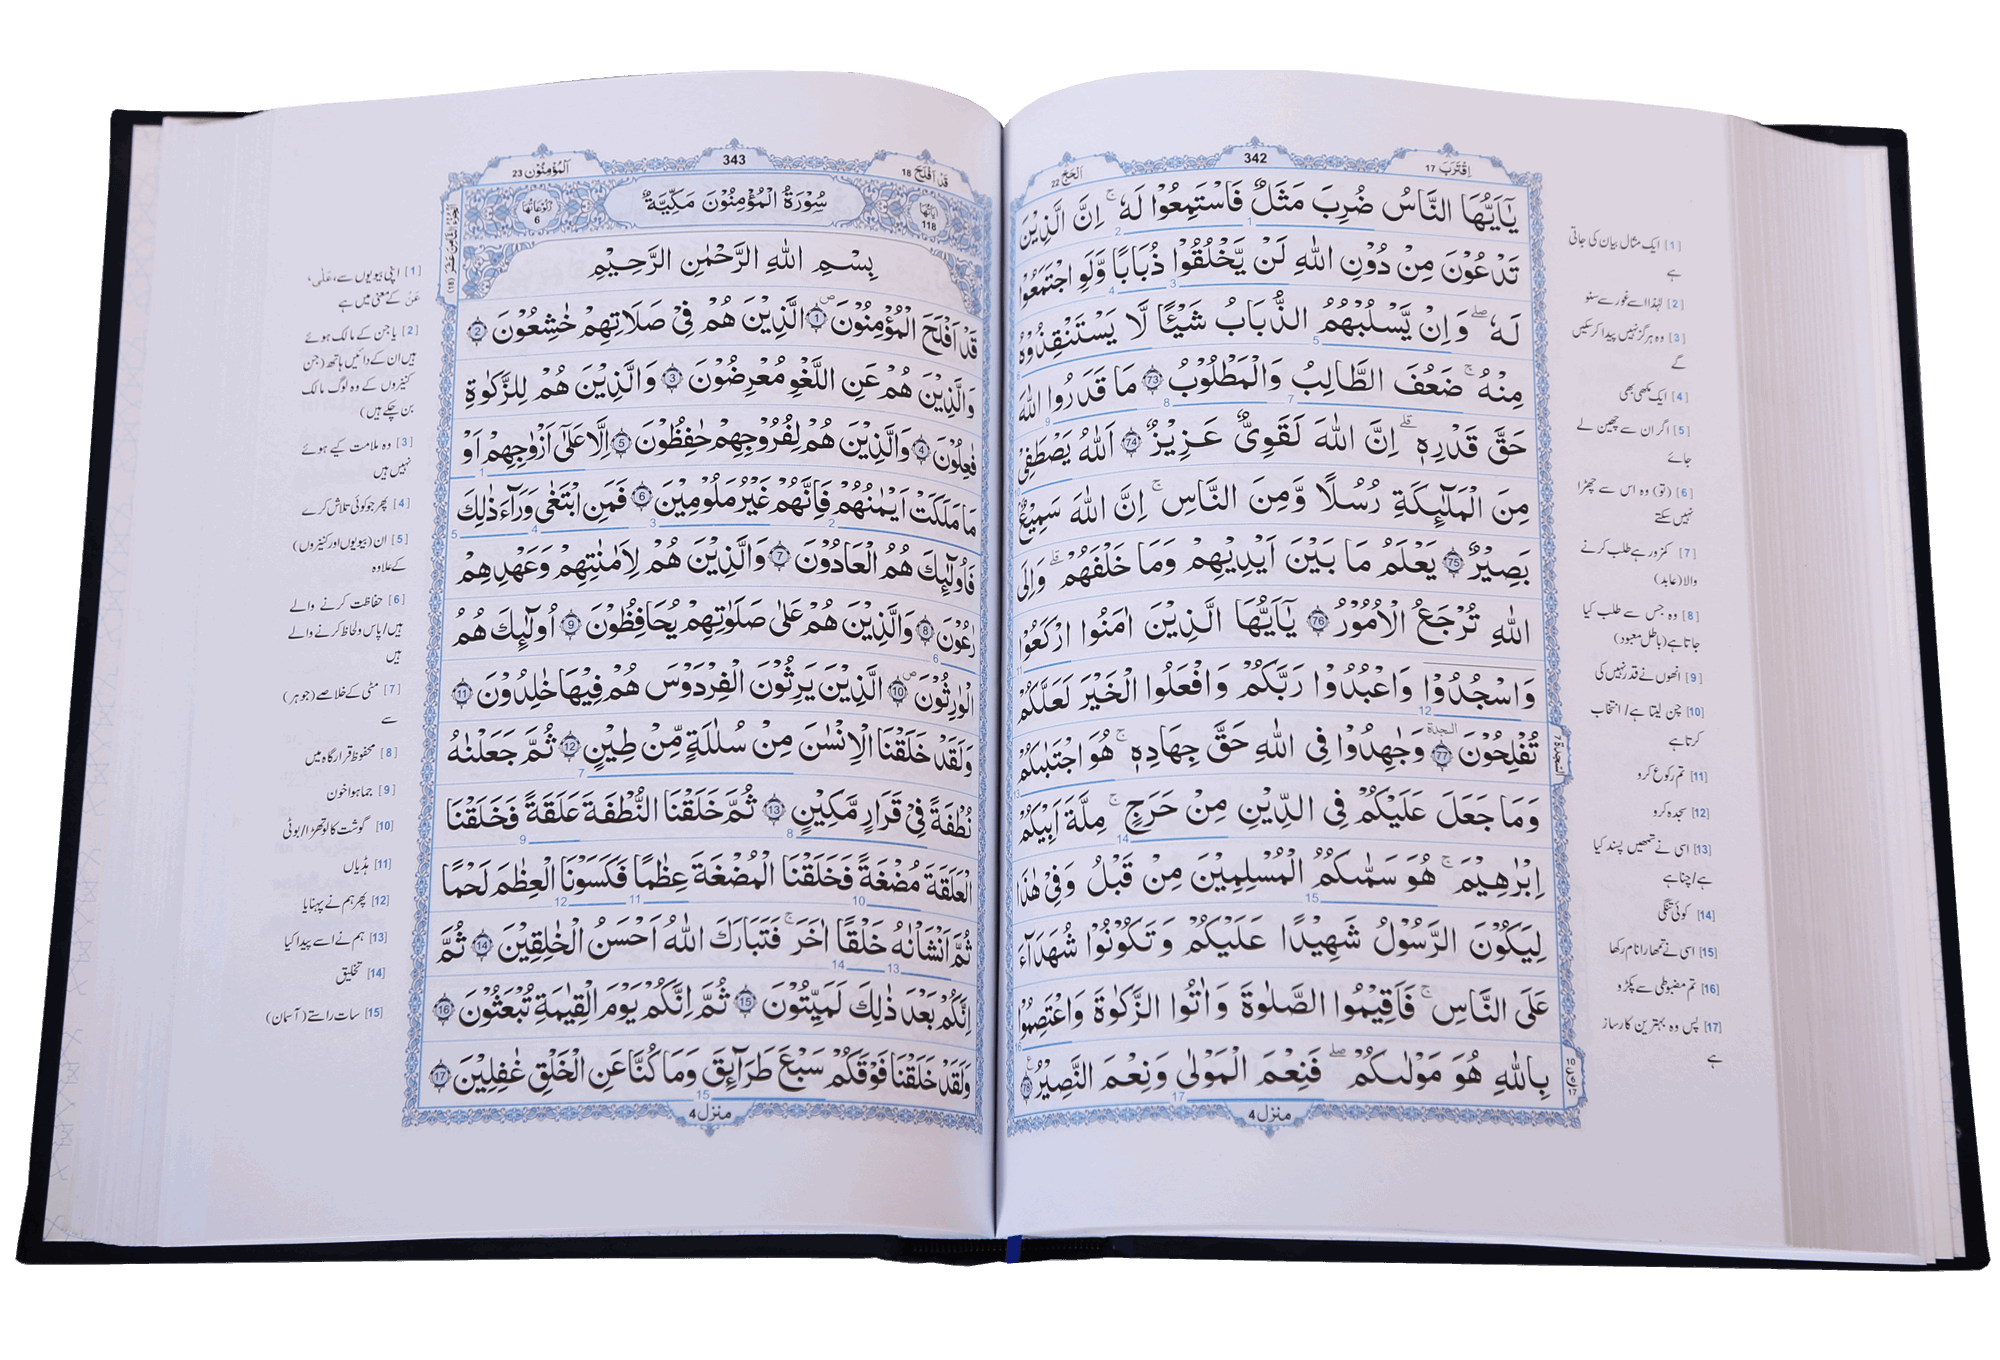 اِقْتَرَبَ 17
342
اَلْحَجّ 22
يٰۤاَيُّهَا النَّاسُ ضُرِبَ مَثَلٌ فَاسْتَمِعُوْا لَهٗ ؕ اِنَّ الَّذِيْنَ
تَدْعُوْنَ مِنْ دُوْنِ اللّٰهِ لَنْ يَّخْلُقُوْا ذُبَابًا وَّلَوِ اجْتَمَعُوْا
لَهٗ ؕ وَاِنْ يَّسْلُبْهُمُ الذُّبَابُ شَيْـًٔا لَّا يَسْتَنْقِذُوْهُ
مِنْهُ ؕ ضَعُفَ الطَّالِبُ وَالْمَطْلُوْبُ 73 مَا قَدَرُوا اللّٰهَ
حَقَّ قَدْرِهٖ ؕ اِنَّ اللّٰهَ لَقَوِىٌّ عَزِيْزٌ 74 اَللّٰهُ يَصْطَفِىْ
مِنَ الْمَلٰٓئِكَةِ رُسُلًا وَّمِنَ النَّاسِ ؕ اِنَّ اللّٰهَ سَمِيْعٌۢ
بَصِيْرٌ 75 يَعْلَمُ مَا بَيْنَ اَيْدِيْهِمْ وَمَا خَلْفَهُمْ ؕ وَاِلَى
اللّٰهِ تُرْجَعُ الْاُمُوْرُ 76 يٰۤاَيُّهَا الَّذِيْنَ اٰمَنُوا ارْكَعُوْا
وَاسْجُدُوْا وَاعْبُدُوْا رَبَّكُمْ وَافْعَلُوا الْخَيْرَ لَعَلَّكُمْ
تُفْلِحُوْنَ 77 وَجٰهِدُوْا فِى اللّٰهِ حَقَّ جِهَادِهٖ ؕ هُوَ اجْتَبٰىكُمْ
وَمَا جَعَلَ عَلَيْكُمْ فِى الدِّيْنِ مِنْ حَرَجٍ ؕ مِلَّةَ اَبِيْكُمْ
اِبْرٰهِيْمَ ؕ هُوَ سَمّٰىكُمُ الْمُسْلِمِيْنَ مِنْ قَبْلُ وَفِىْ هٰذَا
لِيَكُوْنَ الرَّسُوْلُ شَهِيْدًا عَلَيْكُمْ وَتَكُوْنُوْا شُهَدَآءَ
عَلَى النَّاسِ ۚ فَاَقِيْمُوا الصَّلٰوةَ وَاٰتُوا الزَّكٰوةَ وَاعْتَصِمُوْا
بِاللّٰهِ هُوَ مَوْلٰىكُمْ ۚ فَنِعْمَ الْمَوْلٰى وَنِعْمَ النَّصِيْرُ 78
منزل 4
[1] ایک مثال بیان کی جاتی
ہے
[2] لہٰذا اسے غور سے سنو
[3] وہ ہرگز نہیں پیدا کر سکیں
گے
[4] ایک مکھی بھی
[5] اگر ان سے چھین لے
جائے
[6] (تو) وہ اس سے چھڑا
نہیں سکتے
[7] کمزور ہے طلب کرنے
والا (عابد)
[8] وہ جس سے طلب کیا
جاتا ہے (باطل معبود)
[9] انھوں نے قدر نہیں کی
[10] چن لیتا ہے/ انتخاب
کرتا ہے
[11] تم رکوع کرو
[12] سجدہ کرو
[13] اسی نے تمھیں پسند کیا
ہے/ چنا ہے
[14] کوئی تنگی
[15] اسی نے تمھارا نام رکھا
[16] تم مضبوطی سے پکڑو
[17] پس وہ بہترین کارساز
ہے
قَدْ اَفْلَحَ 18
343
اَلْمُؤْمِنُوْن 23
اٰيَاتُهَا 118
سُوْرَةُ الْمُؤْمِنُوْنَ مَكِّيَّةٌ
رُكُوْعَاتُهَا 6
بِسْمِ اللّٰهِ الرَّحْمٰنِ الرَّحِيْمِ
قَدْ اَفْلَحَ الْمُؤْمِنُوْنَ 1 الَّذِيْنَ هُمْ فِىْ صَلَاتِهِمْ خٰشِعُوْنَ 2
وَالَّذِيْنَ هُمْ عَنِ اللَّغْوِ مُعْرِضُوْنَ 3 وَالَّذِيْنَ هُمْ لِلزَّكٰوةِ
فٰعِلُوْنَ 4 وَالَّذِيْنَ هُمْ لِفُرُوْجِهِمْ حٰفِظُوْنَ 5 اِلَّا عَلٰۤى اَزْوَاجِهِمْ اَوْ
مَا مَلَكَتْ اَيْمٰنُهُمْ فَاِنَّهُمْ غَيْرُ مَلُوْمِيْنَ 6 فَمَنِ ابْتَغٰى وَرَآءَ ذٰلِكَ
فَاُولٰٓئِكَ هُمُ الْعَادُوْنَ 7 وَالَّذِيْنَ هُمْ لِاَمٰنٰتِهِمْ وَعَهْدِهِمْ
رٰعُوْنَ 8 وَالَّذِيْنَ هُمْ عَلٰى صَلَوٰتِهِمْ يُحَافِظُوْنَ 9 اُولٰٓئِكَ هُمُ
الْوٰرِثُوْنَ 10 الَّذِيْنَ يَرِثُوْنَ الْفِرْدَوْسَ هُمْ فِيْهَا خٰلِدُوْنَ 11
وَلَقَدْ خَلَقْنَا الْاِنْسٰنَ مِنْ سُلٰلَةٍ مِّنْ طِيْنٍ 12 ثُمَّ جَعَلْنٰهُ
نُطْفَةً فِىْ قَرَارٍ مَّكِيْنٍ 13 ثُمَّ خَلَقْنَا النُّطْفَةَ عَلَقَةً فَخَلَقْنَا
الْعَلَقَةَ مُضْغَةً فَخَلَقْنَا الْمُضْغَةَ عِظٰمًا فَكَسَوْنَا الْعِظٰمَ لَحْمًا
ثُمَّ اَنْشَاْنٰهُ خَلْقًا اٰخَرَ ؕ فَتَبَارَكَ اللّٰهُ اَحْسَنُ الْخٰلِقِيْنَ 14 ثُمَّ
اِنَّكُمْ بَعْدَ ذٰلِكَ لَمَيِّتُوْنَ 15 ثُمَّ اِنَّكُمْ يَوْمَ الْقِيٰمَةِ تُبْعَثُوْنَ 16
وَلَقَدْ خَلَقْنَا فَوْقَكُمْ سَبْعَ طَرَآئِقَ وَمَا كُنَّا عَنِ الْخَلْقِ غٰفِلِيْنَ 17
منزل 4
[1] اپنی بیویوں سے، عَلٰی،
عَنْ کے معنی میں ہے
[2] یا جن کے مالک ہوئے
ہیں ان کے دائیں ہاتھ (جن
کنیزوں کے وہ لوگ مالک
بن چکے ہیں)
[3] وہ ملامت کیے ہوئے
نہیں ہیں
[4] پھر جو کوئی تلاش کرے
[5] ان (بیویوں اور کنیزوں)
کے علاوہ
[6] حفاظت کرنے والے
ہیں/ پاس و لحاظ کرنے والے
ہیں
[7] مٹی کے خلاصے (جوہر)
سے
[8] محفوظ قرار گاہ میں
[9] جما ہوا خون
[10] گوشت کا لوتھڑا/ بوٹی
[11] ہڈیاں
[12] پھر ہم نے پہنایا
[13] ہم نے اسے پیدا کیا
[14] تخلیق
[15] سات راستے (آسمان)